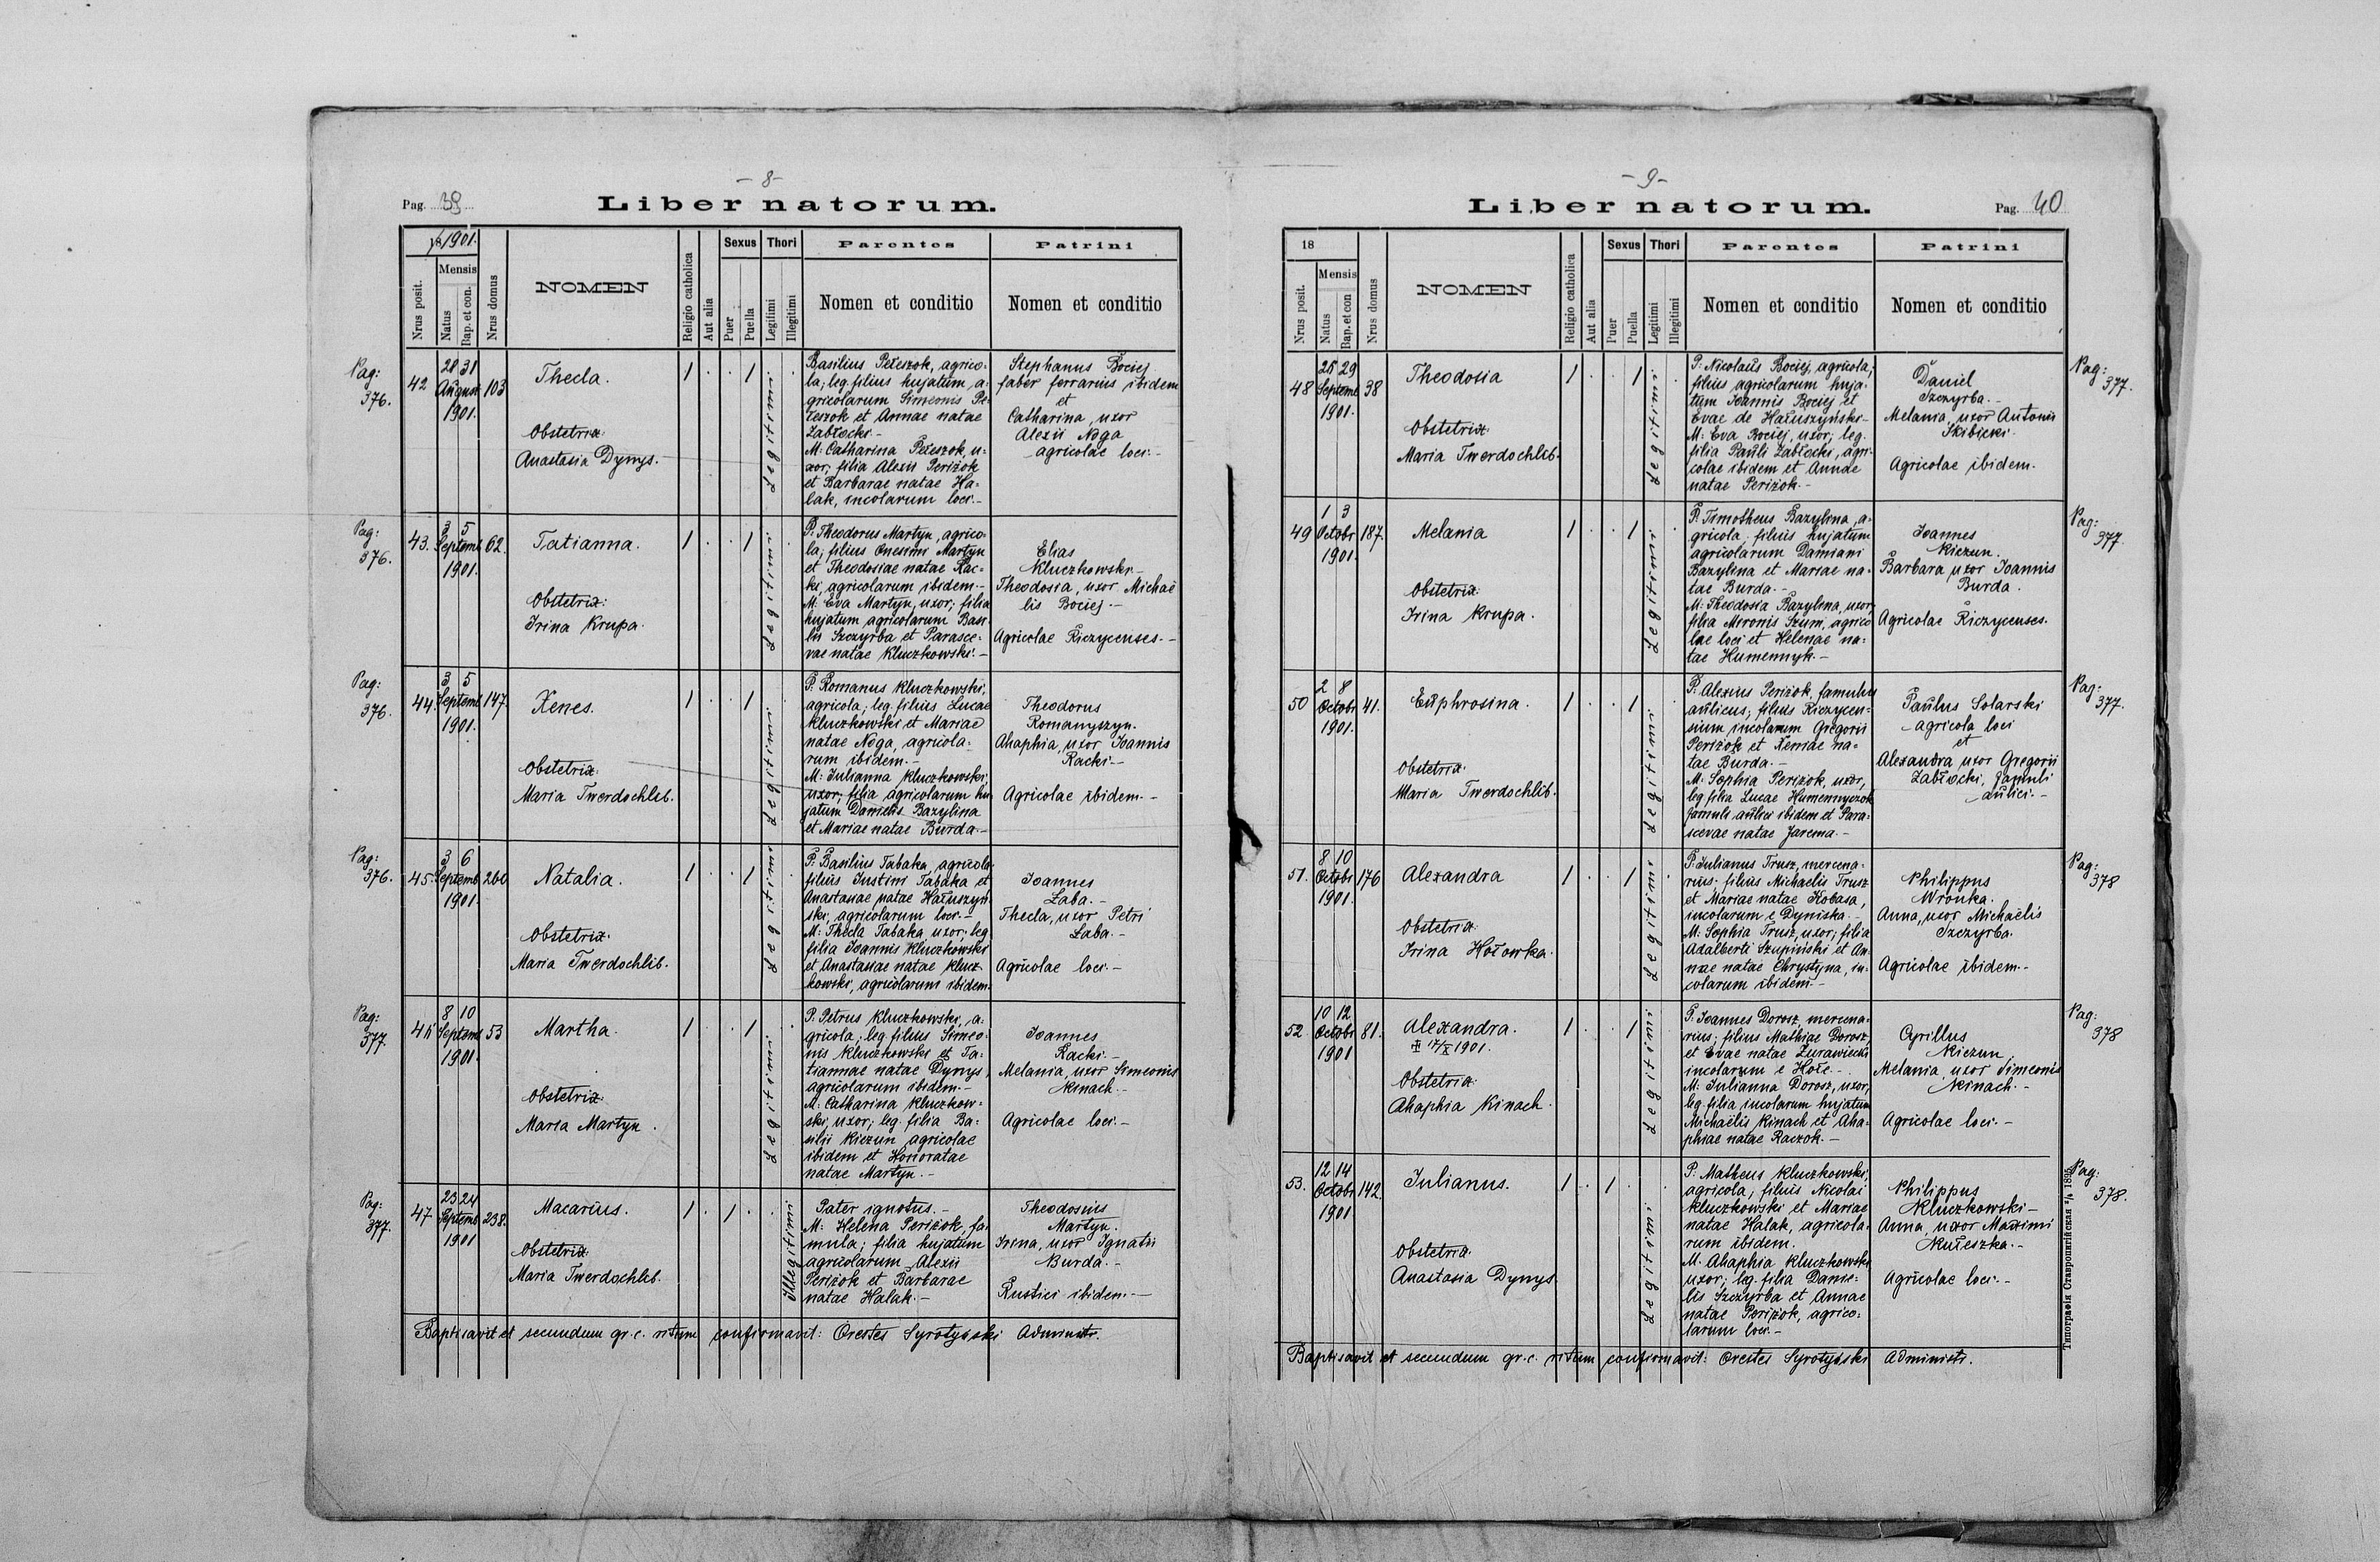 - 8 -
Pag. 39
Liber natorum.
1901.
Nrus posit.
Mensis
Natus
Bap. et con.
Nrus domus
NOMEN
Religio catholica
Aut alia
Sexus
Puer
Puella
Thori
Legitimi
Illegitimi
Parentes
Nomen et conditio
Patrini
Nomen et conditio
Pag:
376.
42
28 31
August
1901.
103
Thecla.
Obstetrix:
Anastasia Dynys.
1 . . 1 .
Legitimi
Basilius Pełeszok, agrico-
la; leg. filius hujatum, a-
gricolarum Simeonis Pe-
łeszok et Annae natae
Zabłocki.-
M: Catharina Pełeszok, u-
xor; filia Alexii Periżok
et Barbarae natae Ha-
lak, incolarum loci.-
Stephanus Bociej
faber ferrarius ibidem
et
Catharina, uxor
Alexii Noga
agricolae loci.-
Pag:
376.
43.
3 5
Septemb
1901.
62.
Tatianna.
Obstetrix:
Irina Krupa.
1 . . 1 .
Legitimi
P: Theodorus Martyn, agrico-
la; filius Onesimi Martyn
et Theodosiae natae Rac-
ki, agricolarum ibidem.-
M: Eva Martyn, uxor; filia
hujatum agricolarum Basi-
lii Szczyrba et Parasce-
vae natae Kluczkowski.-
Elias
Kluczkowski.-
Theodosia, uxor Michaë
lis Bociej.-
Agricolae Riczycenses.-
Pag:
376.
44.
3 5
Septemb
1901.
147.
Xenes.
Obstetrix:
Maria Twerdochlib.
1 . . 1 .
Legitimi
P: Romanus Kluczkowski,
agricola; leg. filius Lucae
Kluczkowski et Mariae
natae Noga, agricola-
rum ibidem.-
M: Julianna Kluczkowski,
uxor; filia agricolarum hu
jatum Danielis Bazylina
et Mariae natae Burda.-
Theodorus
Romanyszyn.
Ahaphia, uxor Joannis
Racki.-
Agricolae ibidem.-
Pag:
376.
45.
3 6
Septemb
1901.
260
Natalia.
Obstetrix:
Maria Twerdochlib.
1 . . 1 .
Legitimi
P: Basilius Tabaka, agricola
filius Justini Tabaka et
Anastasiae natae Hałuszyń
ski, agricolarum loci.-
M: Thecla Tabaka, uxor; leg.
filia Joannis Kluczkowski
et Anastasiae natae Klucz-
kowski, agricolarum ibidem.
Joannes
Łaba.-
Thecla, uxor Petri
Łaba.-
Agricolae loci.-
Pag:
377.
46
8 10
Septemb
1901.
53
Martha.
Obstetrix:
Maria Martyn.
1 . . 1 .
Legitimi
P: Petrus Kluczkowski, a-
gricola; leg. filius Simeo-
nis Kluczkowski et Ta-
tiannae natae Dynys,
agricolarum ibidem.-
M: Catharina Kluczkow-
ski, uxor; leg. filia Ba-
silii Kiczun agricolae
ibidem et Honoratae
natae Martyn.-
Joannes
Racki.-
Melania, uxor Simeonis
Kinach.-
Agricolae loci.-
Pag:
377.
47
23 24
Septemb
1901
238.
Macarius.
Obstetrix:
Maria Twerdochlib.
1 . 1 . .
Illegitimi
Pater ignotus.-
M: Helena Periżok, fa-
mula; filia hujatum
agricolarum Alexii
Periżok et Barbarae
natae Halak.-
Theodosius
Martyn.
Irina, uxor Ignatii
Burda.-
Rustici ibidem.-
Baptisavit et secundum gr. c. ritum confirmavit: Orestes Syrotyński Administr.
- 9 -
Liber natorum.
Pag. 40
18
Nrus posit.
Mensis
Natus
Bap. et con
Nrus domus
NOMEN
Religio catholica
Aut alia
Sexus
Puer
Puella
Thori
Legitimi
Illegitimi
Parentes
Nomen et conditio
Patrini
Nomen et conditio
48
25 29
Septemb
1901.
38
Theodosia
Obstetrix:
Maria Twerdochlib.
1 . . 1 .
Legitimi
P: Nicolaus Bociej, agricola;
filius agricolarum huja-
tum Joannis Bociej et
Evae de Hałuszyński.-
M: Eva Bociej, uxor; leg.
filia Pauli Zabłocki, agri-
colae ibidem et Annae
natae Periżok.-
Daniel
Szczyrba.-
Melania, uxor Antonii
Skibicki.
Agricolae ibidem.
Pag:
377.
49
1 3
Octobr
1901.
187.
Melania
Obstetrix:
Irina Krupa.
1 . . 1 .
Legitimi
P: Timotheus Bazylina, a-
gricola; filius hujatum
agricolarum Damiani
Bazylina et Mariae na-
tae Burda.-
M: Theodosia Bazylina, uxor,
filia Mironis Szum, agrico
lae loci et Helenae na-
tae Humennyk.-
Joannes
Kiczun.
Barbara, uxor Joannis
Burda.
Agricolae Riczycenses.
Pag:
377.
50
2 8
Octobr
1901.
41.
Euphrosina.
Obstetrix:
Maria Twerdochlib.
1 . . 1 .
Legitimi
P: Alexius Periżok, famulus
aulicus; filius Riczycen-
sium incolarum Gregorii
Periżok et Xeniae na-
tae Burda.-
M: Sophia Periżok, uxor,
leg. filia Lucae Humennyczok
famuli aulici ibidem et Para-
scevae natae Jarema.-
Paulus Solarski
agricola loci
et
Alexandra uxor Gregorii
Zabłocki, famuli
aulici.-
Pag:
377.
51.
8 10
Octobr
1901.
176
Alexandra
Obstetrix:
Irina Hołowka.
1 . . 1 .
Legitimi
P: Julianus Trusz, mercena-
rius; filius Michaelis Trusz
et Mariae natae Kobasa,
incolarum e Dyniska.-
M: Sophia Trusz, uxor; filia
Adalberti Szupiński et An-
nae natae Chrystyna, in-
colarum ibidem.-
Philippus
Wronka.
Anna, uxor Michaëlis
Szczyrba.
Agricolae ibidem.-
Pag:
378
52.
10 12
Octobr
1901
81.
Alexandra.
17/X 1901.
Obstetrix:
Ahaphia Kinach.
1 . . 1 .
Legitimi
P: Joannes Dorosz, mercena-
rius; filius Mathiae Dorosz
et Evae natae Żurawiecki
incolarum e Hołe.-
M: Julianna Dorosz, uxor,
leg. filia incolarum hujatum
Michaëlis Kinach et Aha-
phiae natae Raczok.-
Cyrillus
Kiczun,
Melania, uxor Simeonis
Kinach.-
Agricolae loci.-
Pag:
378
53.
12 14
Octobr
1901
142.
Julianus.
Obstetrix:
Anastasia Dynys
1 . 1 . .
Legitimi
P: Matheus Kluczkowski,
agricola; filius Nicolai
Kluczkowski et Mariae
natae Halak, agricola-
rum ibidem.
M: Ahaphia Kluczkowski
uxor; leg. filia Danie-
lis Szczyrba et Annae
natae Periżok, agrico-
larum loci.-
Philippus
Kluczkowski-
Anna, uxor Maximi
Kułeszka.-
Agricolae loci.-
Pag:
378.
Baptisavit et secundum gr. c. ritum confirmavit: Orestes Syrotyński Administr.
Типографія Ставропигійская 1895.